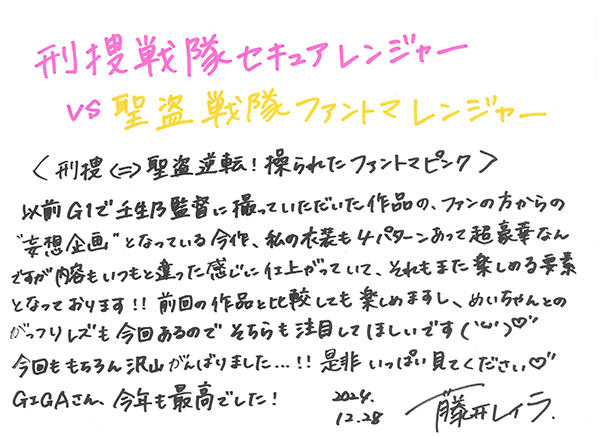 刑捜戦隊セキュアレンジャー
VS 聖盗戦隊ファントマレンジャー
〈刑捜⇔聖盗逆転！操られたファントマピンク〉
以前G1で壬生乃監督に撮っていただいた作品の、ファンの方からの
"妄想企画"となっている今作、私の衣装も4パターンあって超豪華なん
ですが内容もいつもと違った感じに仕上がっていて、それもまた楽しめる要素
となっております！！前回の作品と比較しても楽しめますし、めいちゃんとの
がっつりレズも今回あるのでそちらも注目してほしいです('ω')♡"
今回ももちろん沢山がんばりました…！！是非いっぱい見てください♡"
GIGAさん、今年も最高でした！
2024.
12.28
藤井レイラ.